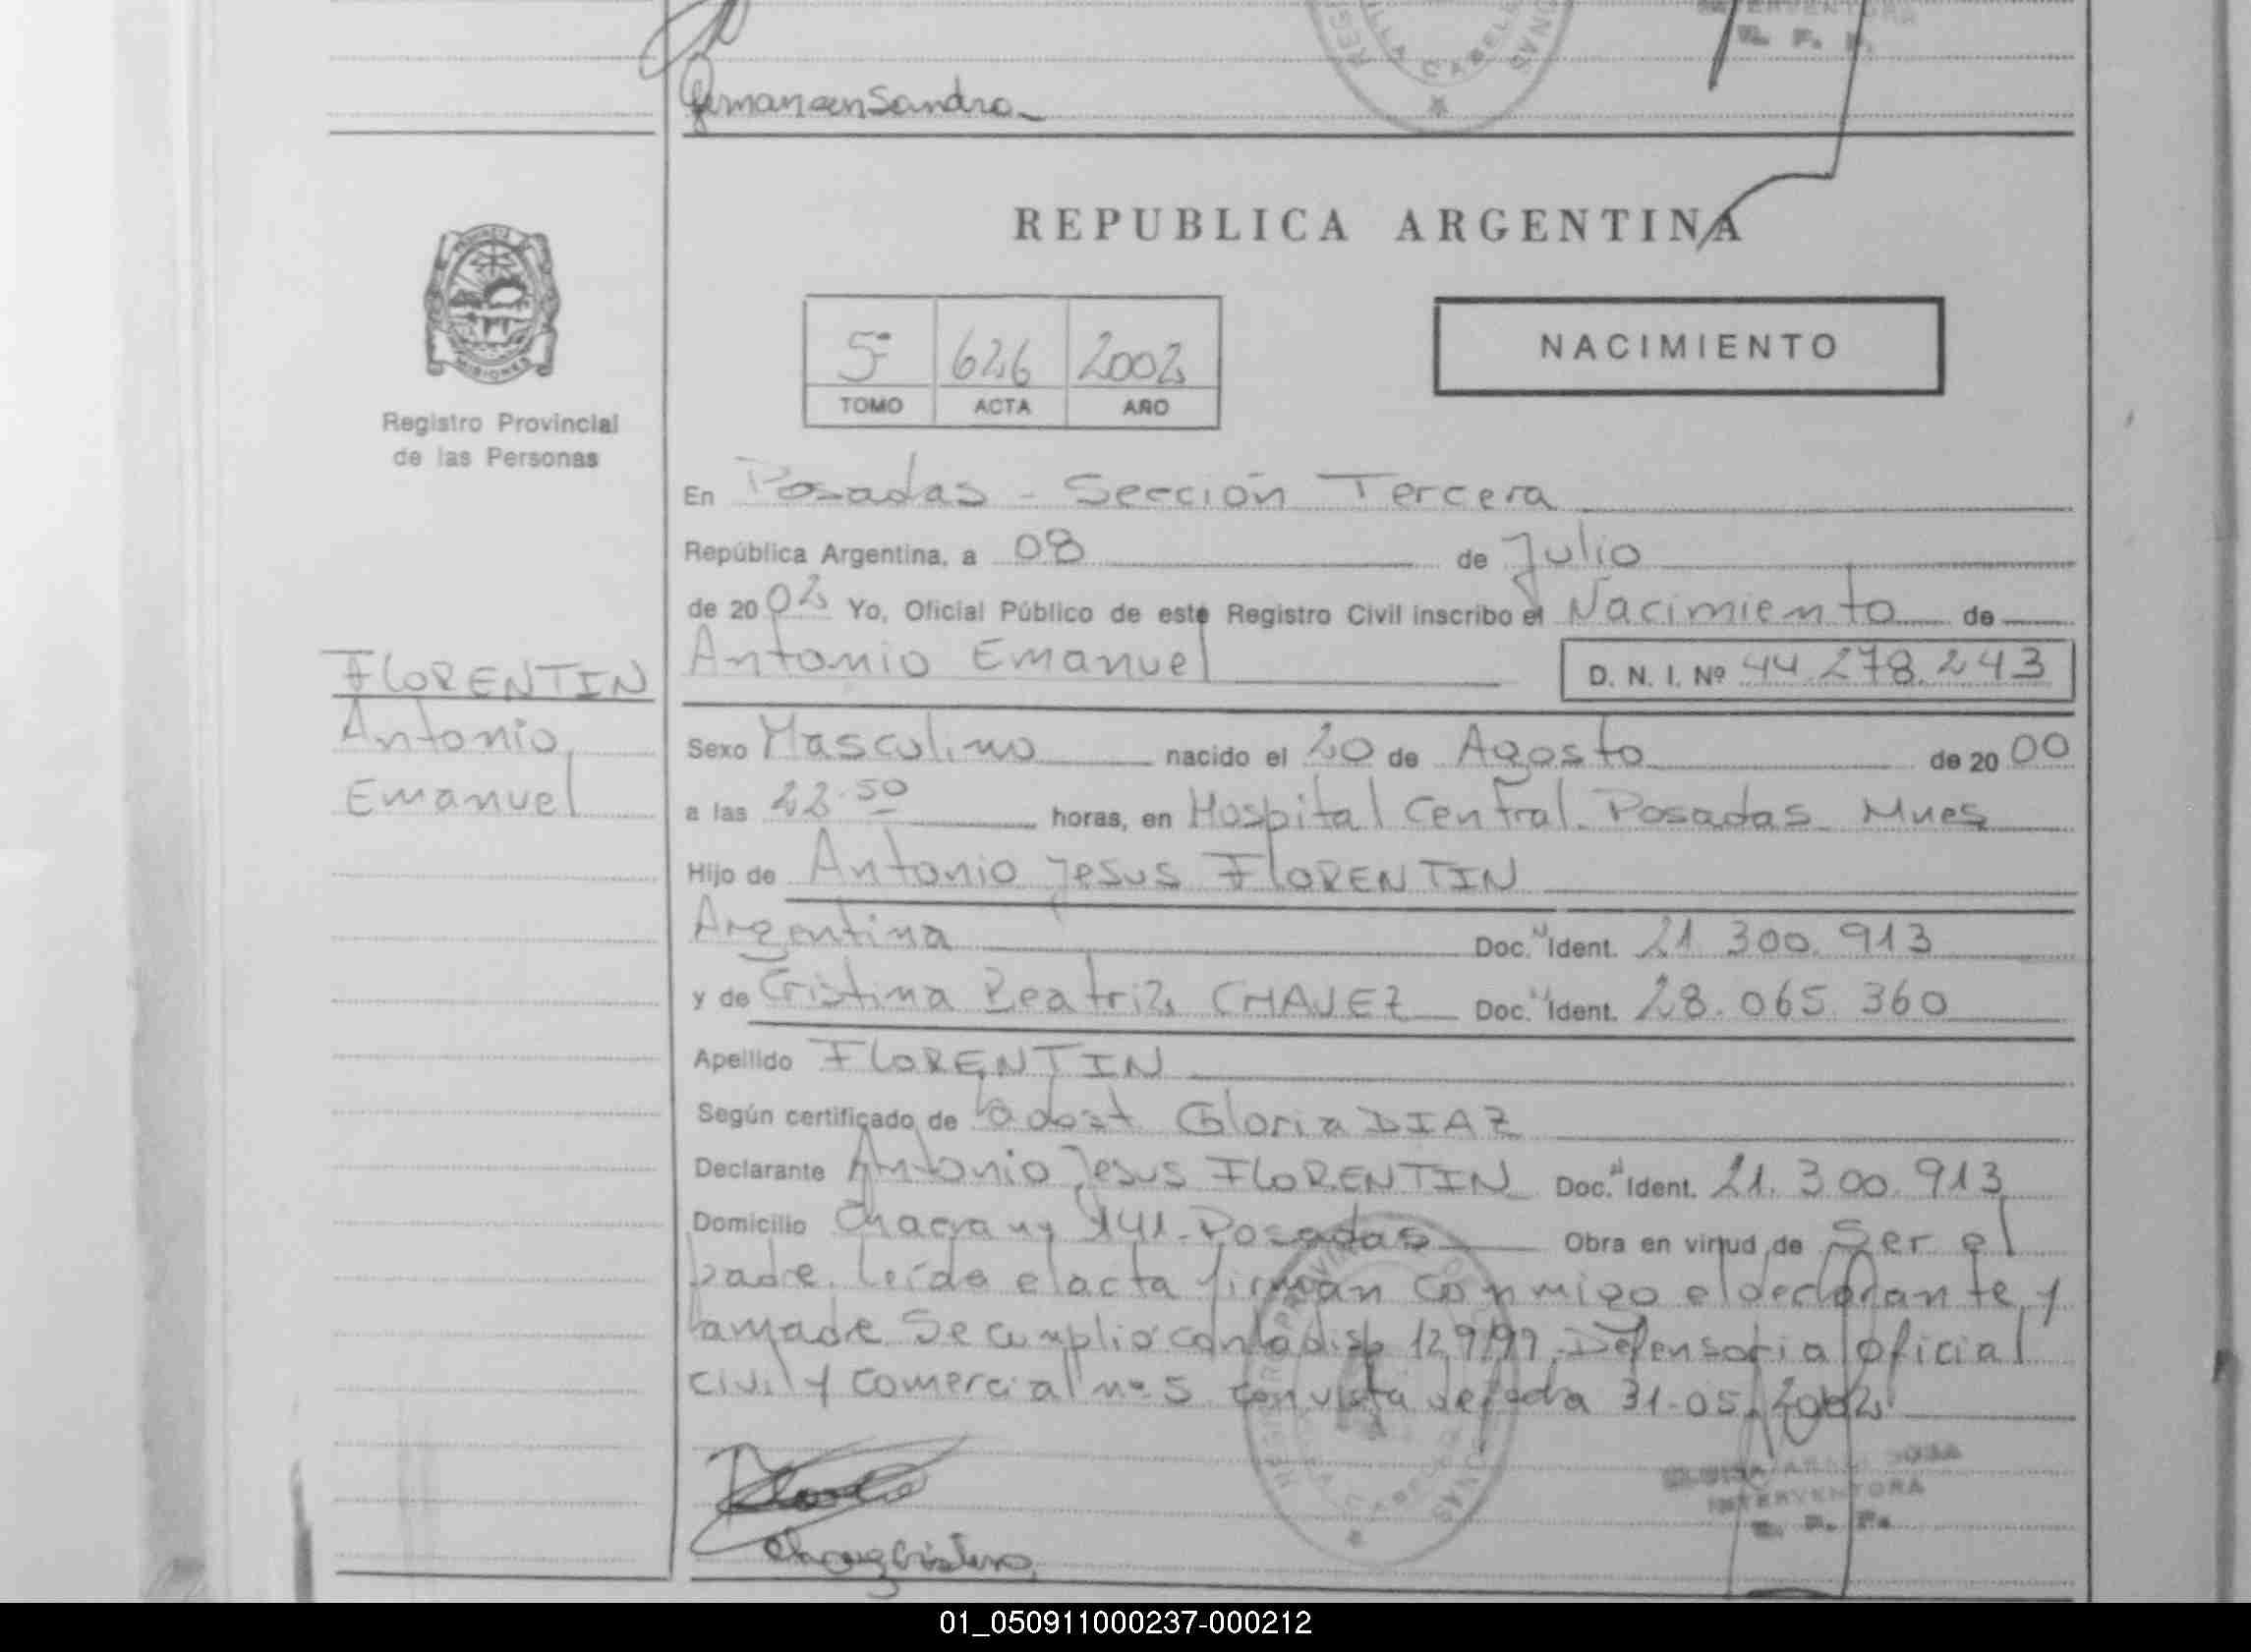 Germanaen Sandra
REGIS
VILLA CABELLO
ONAS
INTERVENTORA
R. P. P.
PROVINCIA DE
MISIONES
Registro Provincial
de las Personas
FLORENTIN
Antonio
Emanuel
REPUBLICA ARGENTINA
5º 626 2002
TOMO ACTA AÑO
NACIMIENTO
En Posadas - Sección Tercera
República Argentina, a 08 de Julio
de 2002 Yo, Oficial Público de este Registro Civil inscribo el Nacimiento de
Antonio Emanuel D. N. I. Nº 44.278.243
Sexo Masculino nacido el 20 de Agosto de 2000
a las 22.50 horas, en Hospital Central. Posadas Mnes
Hijo de Antonio Jesus FLORENTIN
Argentina Doc. N Ident. 21.300.913
y de Cristina Beatriz CHAVEZ Doc. N Ident. 28.065.360
Apellido FLORENTIN
Según certificado de la obst Gloria DIAZ
Declarante Antonio Jesus FLORENTIN Doc. N Ident. 21.300.913
Domicilio Chacra 141 - Posadas Obra en virtud de Ser el
padre. Leída el acta firman conmigo el declarante y
la madre Se cumplió con la disp 129/99, Defensoria oficial
civil y comercial nº 5 con vista de fecha 31-05-2002
INTERVENTORA
R. P. P.
Chavez Cristina
01_050911000237-000212